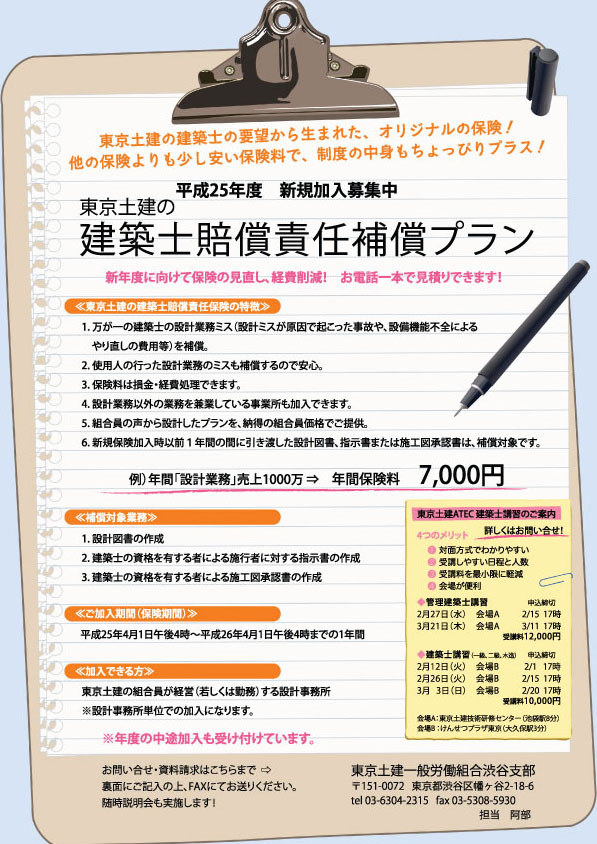 東京土建の建築士の要望から生まれた、オリジナルの保険！
他の保険よりも少し安い保険料で、制度の中身もちょっぴりプラス！
平成25年度　新規加入募集中
東京土建の
建築士賠償責任補償プラン
新年度に向けて保険の見直し、経費削減！　お電話一本で見積りできます！
≪東京土建の建築士賠償責任保険の特徴≫
1. 万が一の建築士の設計業務ミス（設計ミスが原因で起こった事故や、設備機能不全による
やり直しの費用等）を補償。
2. 使用人の行った設計業務のミスも補償するので安心。
3. 保険料は損金・経費処理できます。
4. 設計業務以外の業務を兼業している事業所も加入できます。
5. 組合員の声から設計したプランを、納得の組合員価格でご提供。
6. 新規保険加入時以前１年間の間に引き渡した設計図書、指示書または施工図承認書は、補償対象です。
例）年間「設計業務」売上1000万⇒　年間保険料　7,000円
≪補償対象業務≫
1. 設計図書の作成
2. 建築士の資格を有する者による施行者に対する指示書の作成
3. 建築士の資格を有する者による施工図承認書の作成
≪ご加入期間（保険期間）≫
平成25年4月1日午後4時〜平成26年4月1日午後4時までの1年間
≪加入できる方≫
東京土建の組合員が経営（若しくは勤務）する設計事務所
※設計事務所単位での加入になります。
※年度の中途加入も受け付けています。
東京土建ATEC 建築士講習のご案内
4つのメリット　詳しくはお問い合せ！
❶ 対面方式でわかりやすい
❷ 受講しやすい日程と人数
❸ 受講料を最小限に軽減
❹ 会場が便利
◆管理建築士講習　申込締切
2月27日（水）　会場A　2/15 17時
3月21日（木）　会場A　3/11 17時
受講料12,000円
◆建築士講習（一級、二級、木造）　申込締切
2月12日（火）　会場B　2/1 17時
2月26日（火）　会場B　2/15 17時
3月 3日（日）　会場B　2/20 17時
受講料10,000円
会場A：東京土建技術研修センター（池袋駅8分）
会場B：けんせつプラザ東京（大久保駅3分）
お問い合せ・資料請求はこちらまで ⇨
裏面にご記入の上、FAXにてお送りください。
随時説明会も実施します！
東京土建一般労働組合渋谷支部
〒151-0072　東京都渋谷区幡ヶ谷2-18-6
tel 03-6304-2315　fax 03-5308-5930
担当　阿部